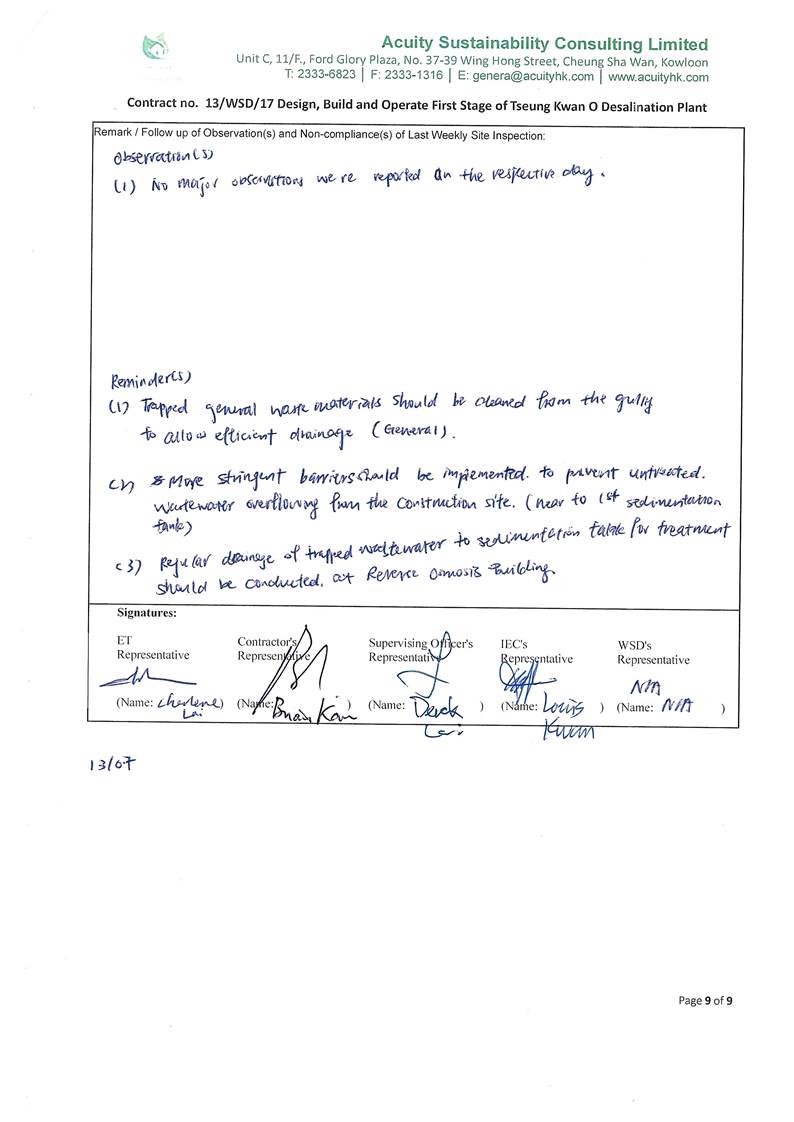 Acuity Sustainability Consulting Limited
Unit C, 11/F., Ford Glory Plaza, No. 37-39 Wing Hong Street, Cheung Sha Wan, Kowloon
T: 2333-6823 | F: 2333-1316 | E: genera@acuityhk.com | www.acuityhk.com
Contract no. 13/WSD/17 Design, Build and Operate First Stage of Tseung Kwan O Desalination Plant
Remark / Follow up of Observation(s) and Non-compliance(s) of Last Weekly Site Inspection:
Observation(s)
(1) No major observations were reported on the respective day.
Reminder(s)
(1) Trapped general waste materials should be cleaned from the gully
to allow efficient drainage (General).
(2) More stringent barriers should be implemented. to prevent untreated.
wastewater overflowing from the construction site. (near to 1st sedimentation
tank)
(3) Regular drainage of trapped wastewater to sedimentation tank for treatment
should be conducted. at Reverse Osmosis Building.
Signatures:
ET Representative
Contractor's Representative
Supervising Officer's Representative
IEC's Representative
WSD's Representative
N/A
(Name: Cherlene Lai)
(Name: Brian Kam)
(Name: Derek Lai)
(Name: Louis Kwan)
(Name: N/A)
13/07
Page 9 of 9